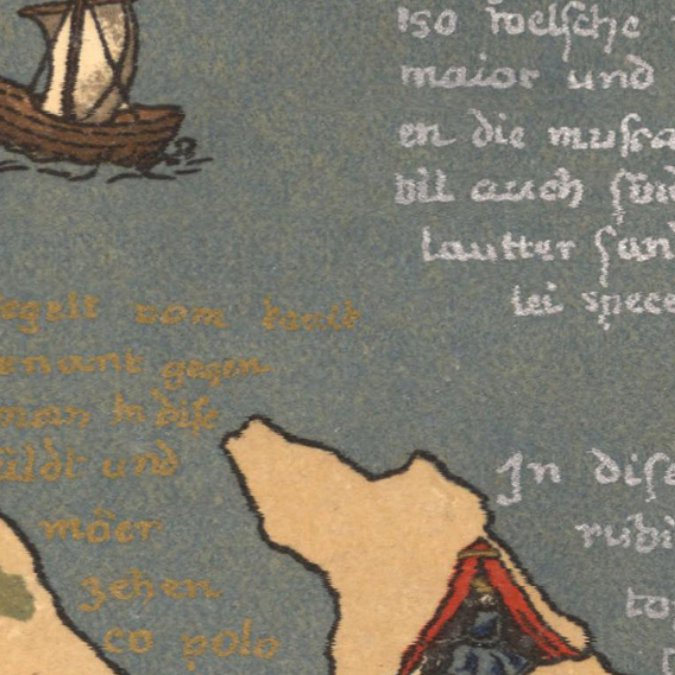 150 welsche
maior und
en die musca
bil auch
lautter
lei spece
segelt vom
genant gegen
man In dise
und
mör
zehen
co polo
In dise
rubi